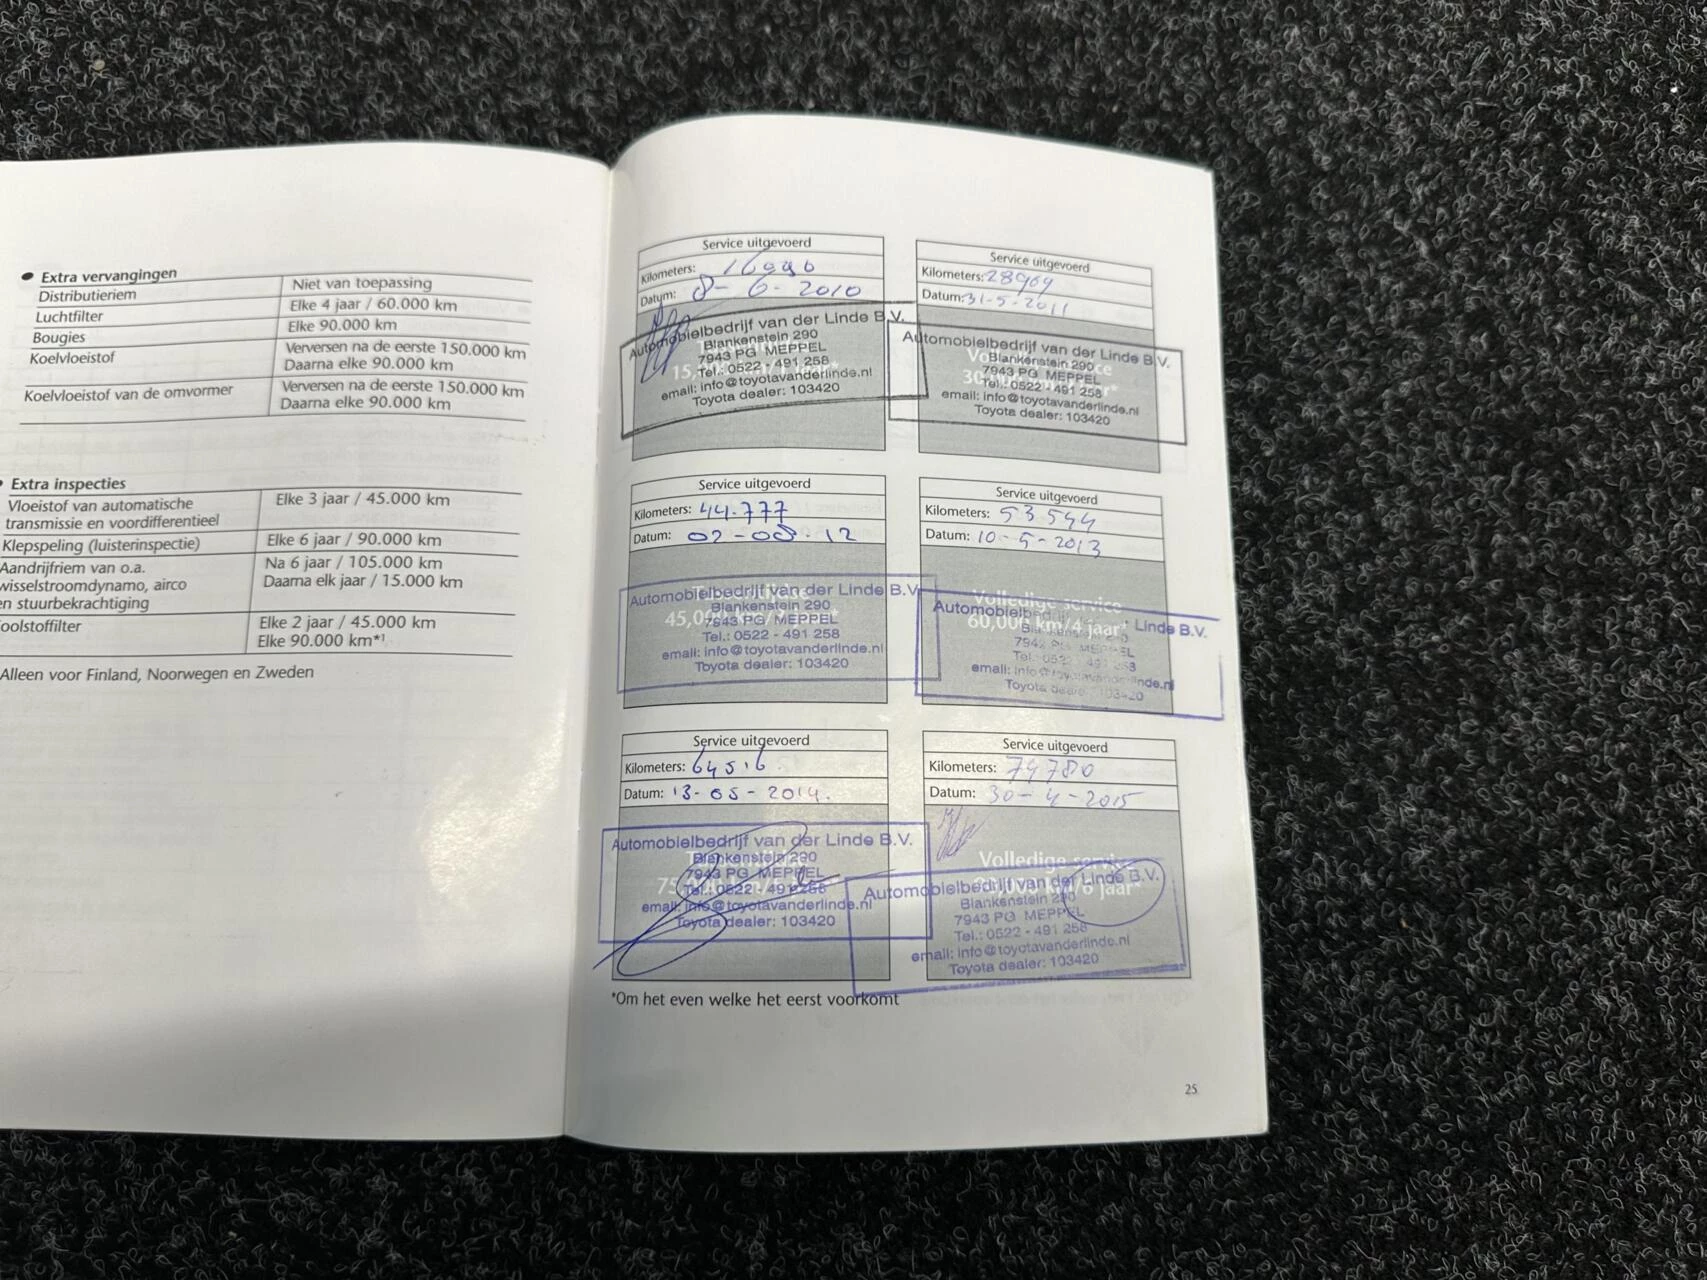 ● Extra vervangingen
Distributieriem Niet van toepassing
Luchtfilter Elke 4 jaar / 60.000 km
Bougies Elke 90.000 km
Koelvloeistof Verversen na de eerste 150.000 km
Daarna elke 90.000 km
Koelvloeistof van de omvormer Verversen na de eerste 150.000 km
Daarna elke 90.000 km
Extra inspecties
Vloeistof van automatische
transmissie en voordifferentieel
Elke 3 jaar / 45.000 km
Klepspeling (luisterinspectie) Elke 6 jaar / 90.000 km
Aandrijfriem van o.a.
wisselstroomdynamo, airco
en stuurbekrachtiging
Na 6 jaar / 105.000 km
Daarna elk jaar / 15.000 km
oolstoffilter Elke 2 jaar / 45.000 km
Elke 90.000 km*1
Alleen voor Finland, Noorwegen en Zweden
Service uitgevoerd
Kilometers:
Datum: 8-6-2010
Automobielbedrijf van der Linde B.V.
Blankenstein 290
7943 PG MEPPEL
Tel.: 0522 - 491 258
email: info@toyotavanderlinde.nl
Toyota dealer: 103420
Service uitgevoerd
Kilometers: 28969
Datum: 31-5-2011
Automobielbedrijf van der Linde B.V.
Blankenstein 290
7943 PG MEPPEL
Tel.: 0522 - 491 258
email: info@toyotavanderlinde.nl
Toyota dealer: 103420
Service uitgevoerd
Kilometers: 44.777
Datum: 02-08-12
Automobielbedrijf van der Linde B.V.
Blankenstein 290
7943 PG MEPPEL
Tel.: 0522 - 491 258
email: info@toyotavanderlinde.nl
Toyota dealer: 103420
Service uitgevoerd
Kilometers: 53544
Datum: 10-5-2013
Volledige service
60,000 km/4 jaar*
Automobielbedrijf Linde B.V.
7943 PG MEPPEL
Tel.: 0522 491 258
Toyota dealer: 103420
Service uitgevoerd
Kilometers: 64516
Datum: 13-05-2014.
Automobielbedrijf van der Linde B.V.
Blankenstein 290
7943 PG MEPPEL
Tel.: 0522 - 491 258
email: info@toyotavanderlinde.nl
Toyota dealer: 103420
Service uitgevoerd
Kilometers: 74780
Datum: 30-4-2015
Volledige service
km/6 jaar*
Automobielbedrijf van der Linde B.V.
Blankenstein 290
7943 PG MEPPEL
Tel.: 0522 - 491 258
email: info@toyotavanderlinde.nl
Toyota dealer: 103420
*Om het even welke het eerst voorkomt
25